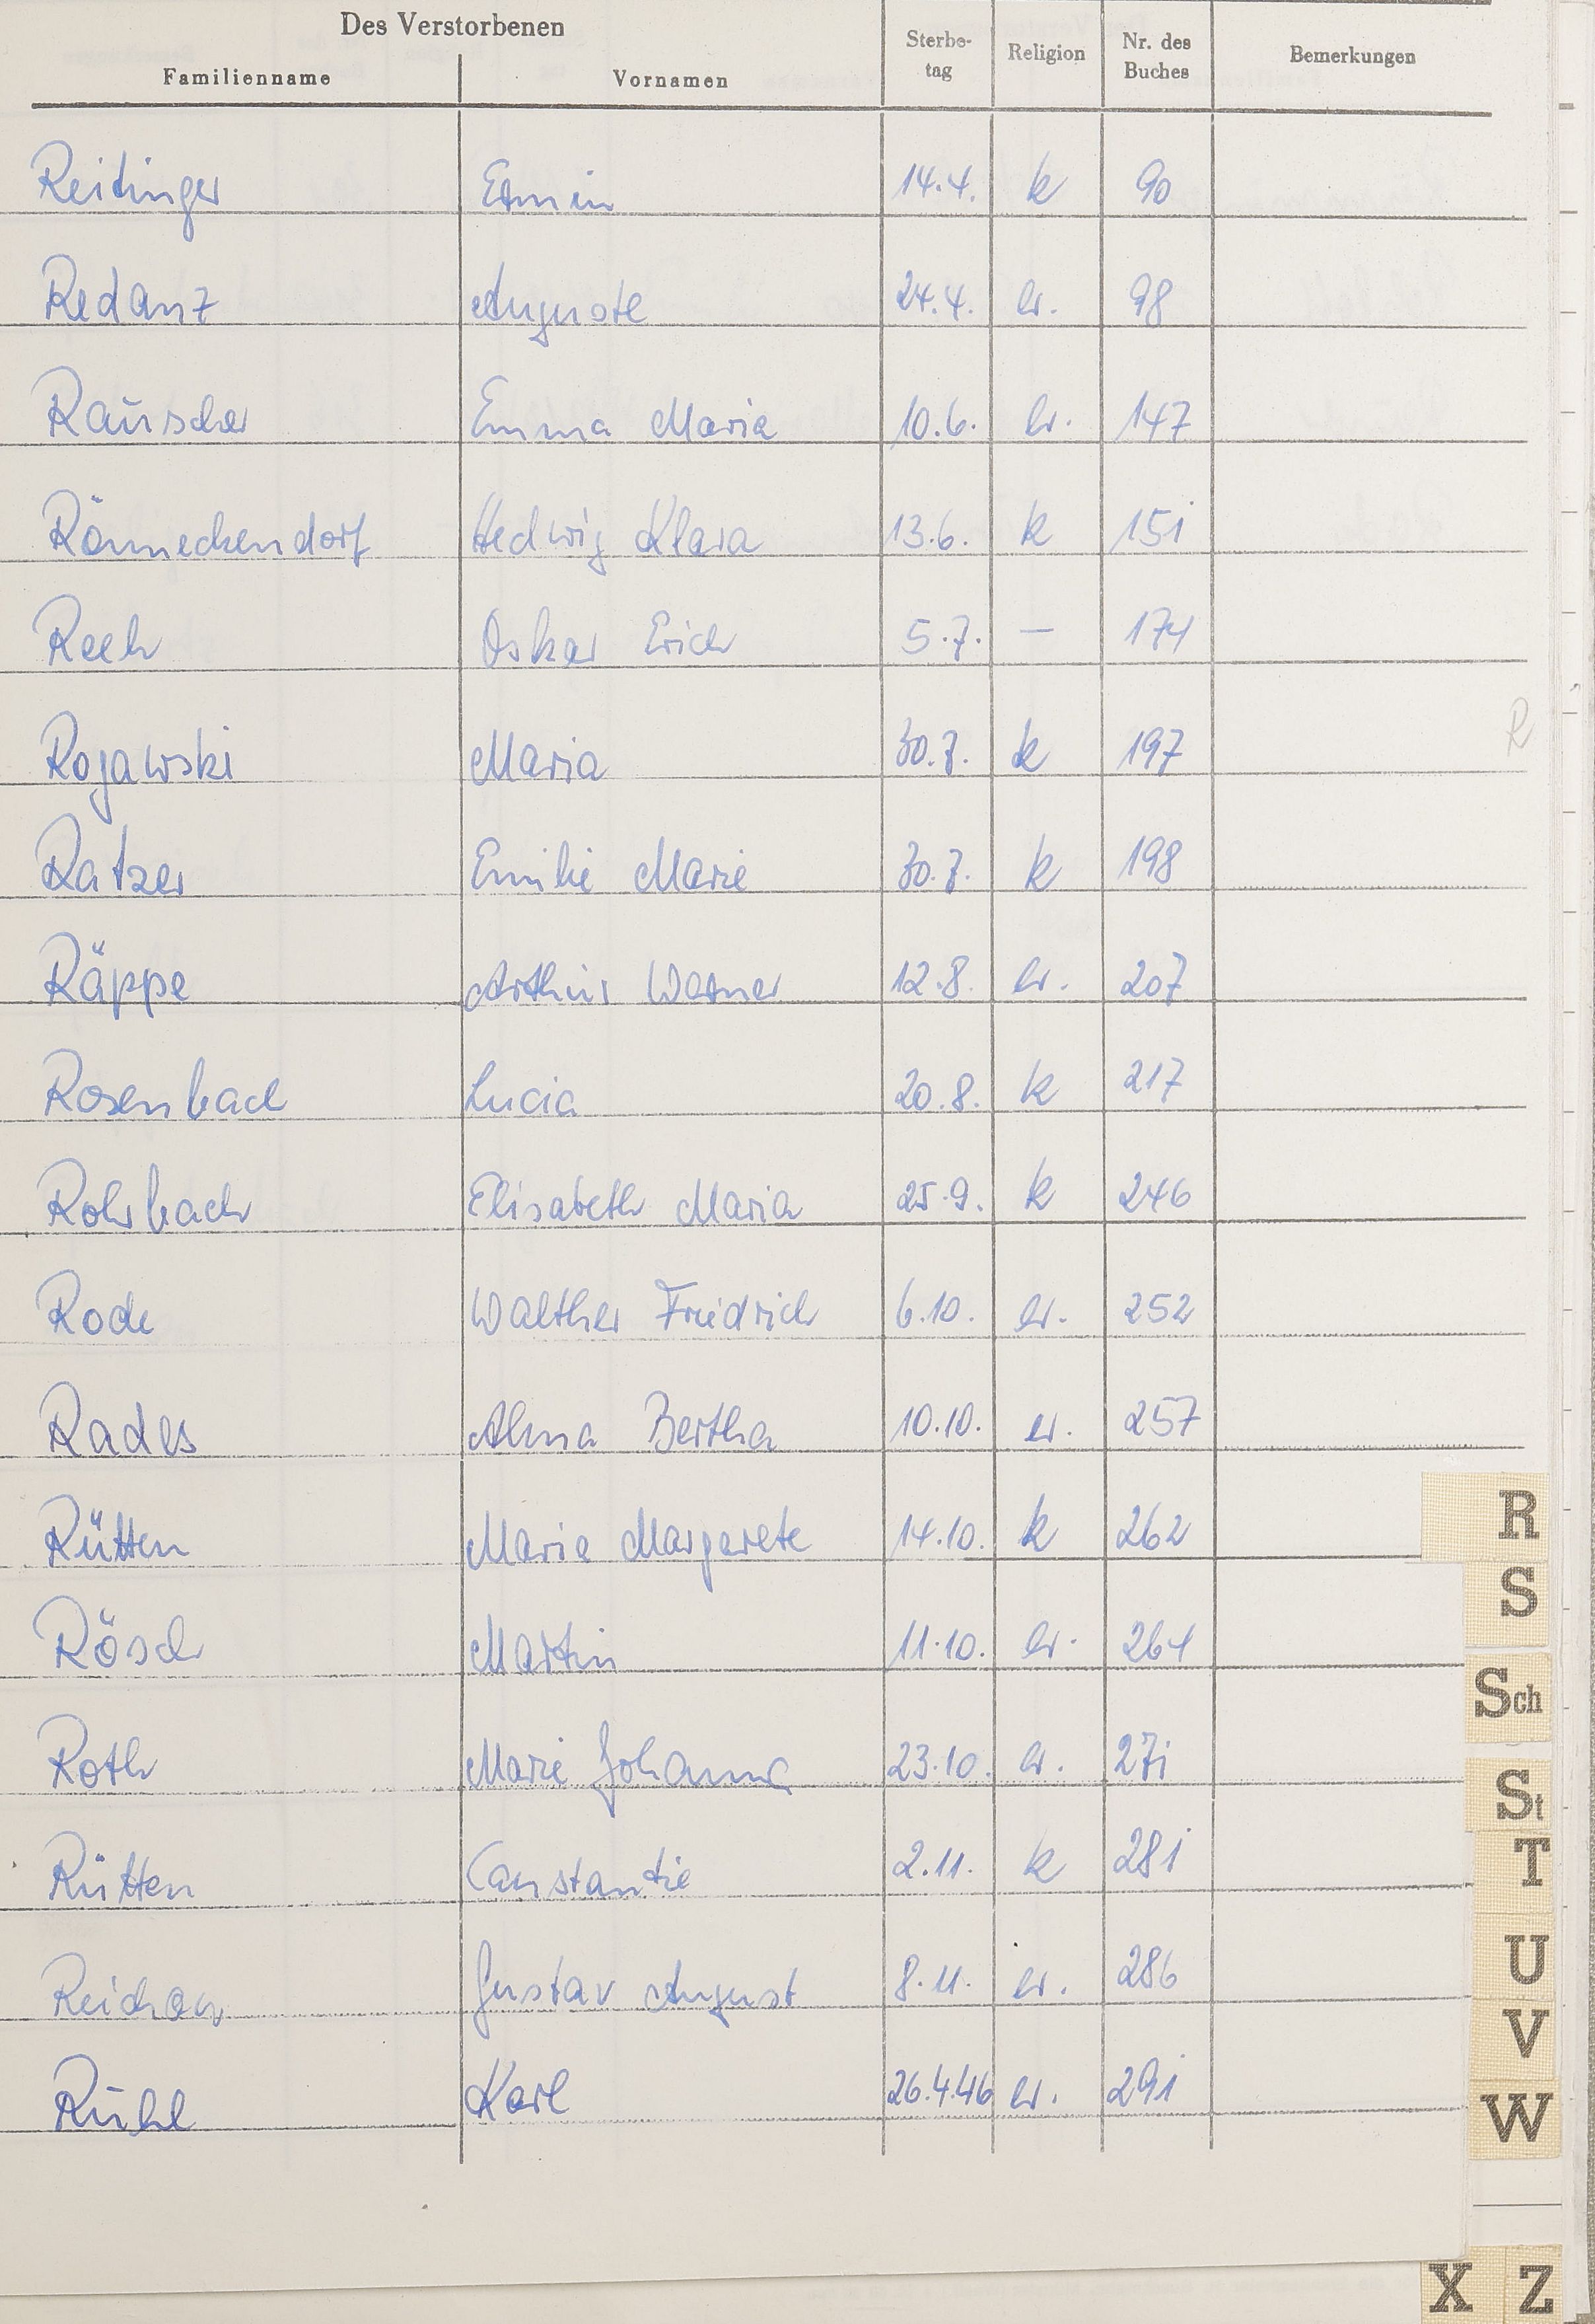 Des Verstorbenen
Familienname Vornamen Sterbe-tag Religion Nr. des Buches Bemerkungen
Reitinger Erwin 14.4. k 90
Redanz Auguste 24.4. ev. 98
Rauscher Emma Maria 10.6. ev. 147
Rönneckendorf Hedwig Klara 13.6. k 151
Reeh Oskar Erich 5.7. — 174
Rogawski Maria 30.7. k 197
R
Ratzer Emilie Marie 30.7. k 198
Räppe Arthur Werner 12.8. ev. 207
Rosenbach Lucia 20.8. k 217
Rohrbach Elisabeth Maria 25.9. k 246
Rode Walther Friedrich 6.10. ev. 252
Rades Alma Bertha 10.10. ev. 257
Rütten Maria Margarete 14.10. k 262
Rösch Martin 11.10. ev. 264
Roth Marie Johanna 23.10. ev. 271
Rütten Constantie 2.11. k 281
Gustav August 8.11. ev. 286
Rühl Karl 26.4.46 ev. 291
R
S
Sch
St
T
U
V
W
X Z